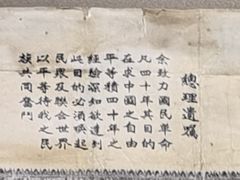 總理遺囑
余致力國民革命
凡四十年其目的
在求中國之自由
平等積四十年之
經驗深知欲達到
此目的必須喚起
民眾及聯合世界
以平等待我之民
族共同奮鬥